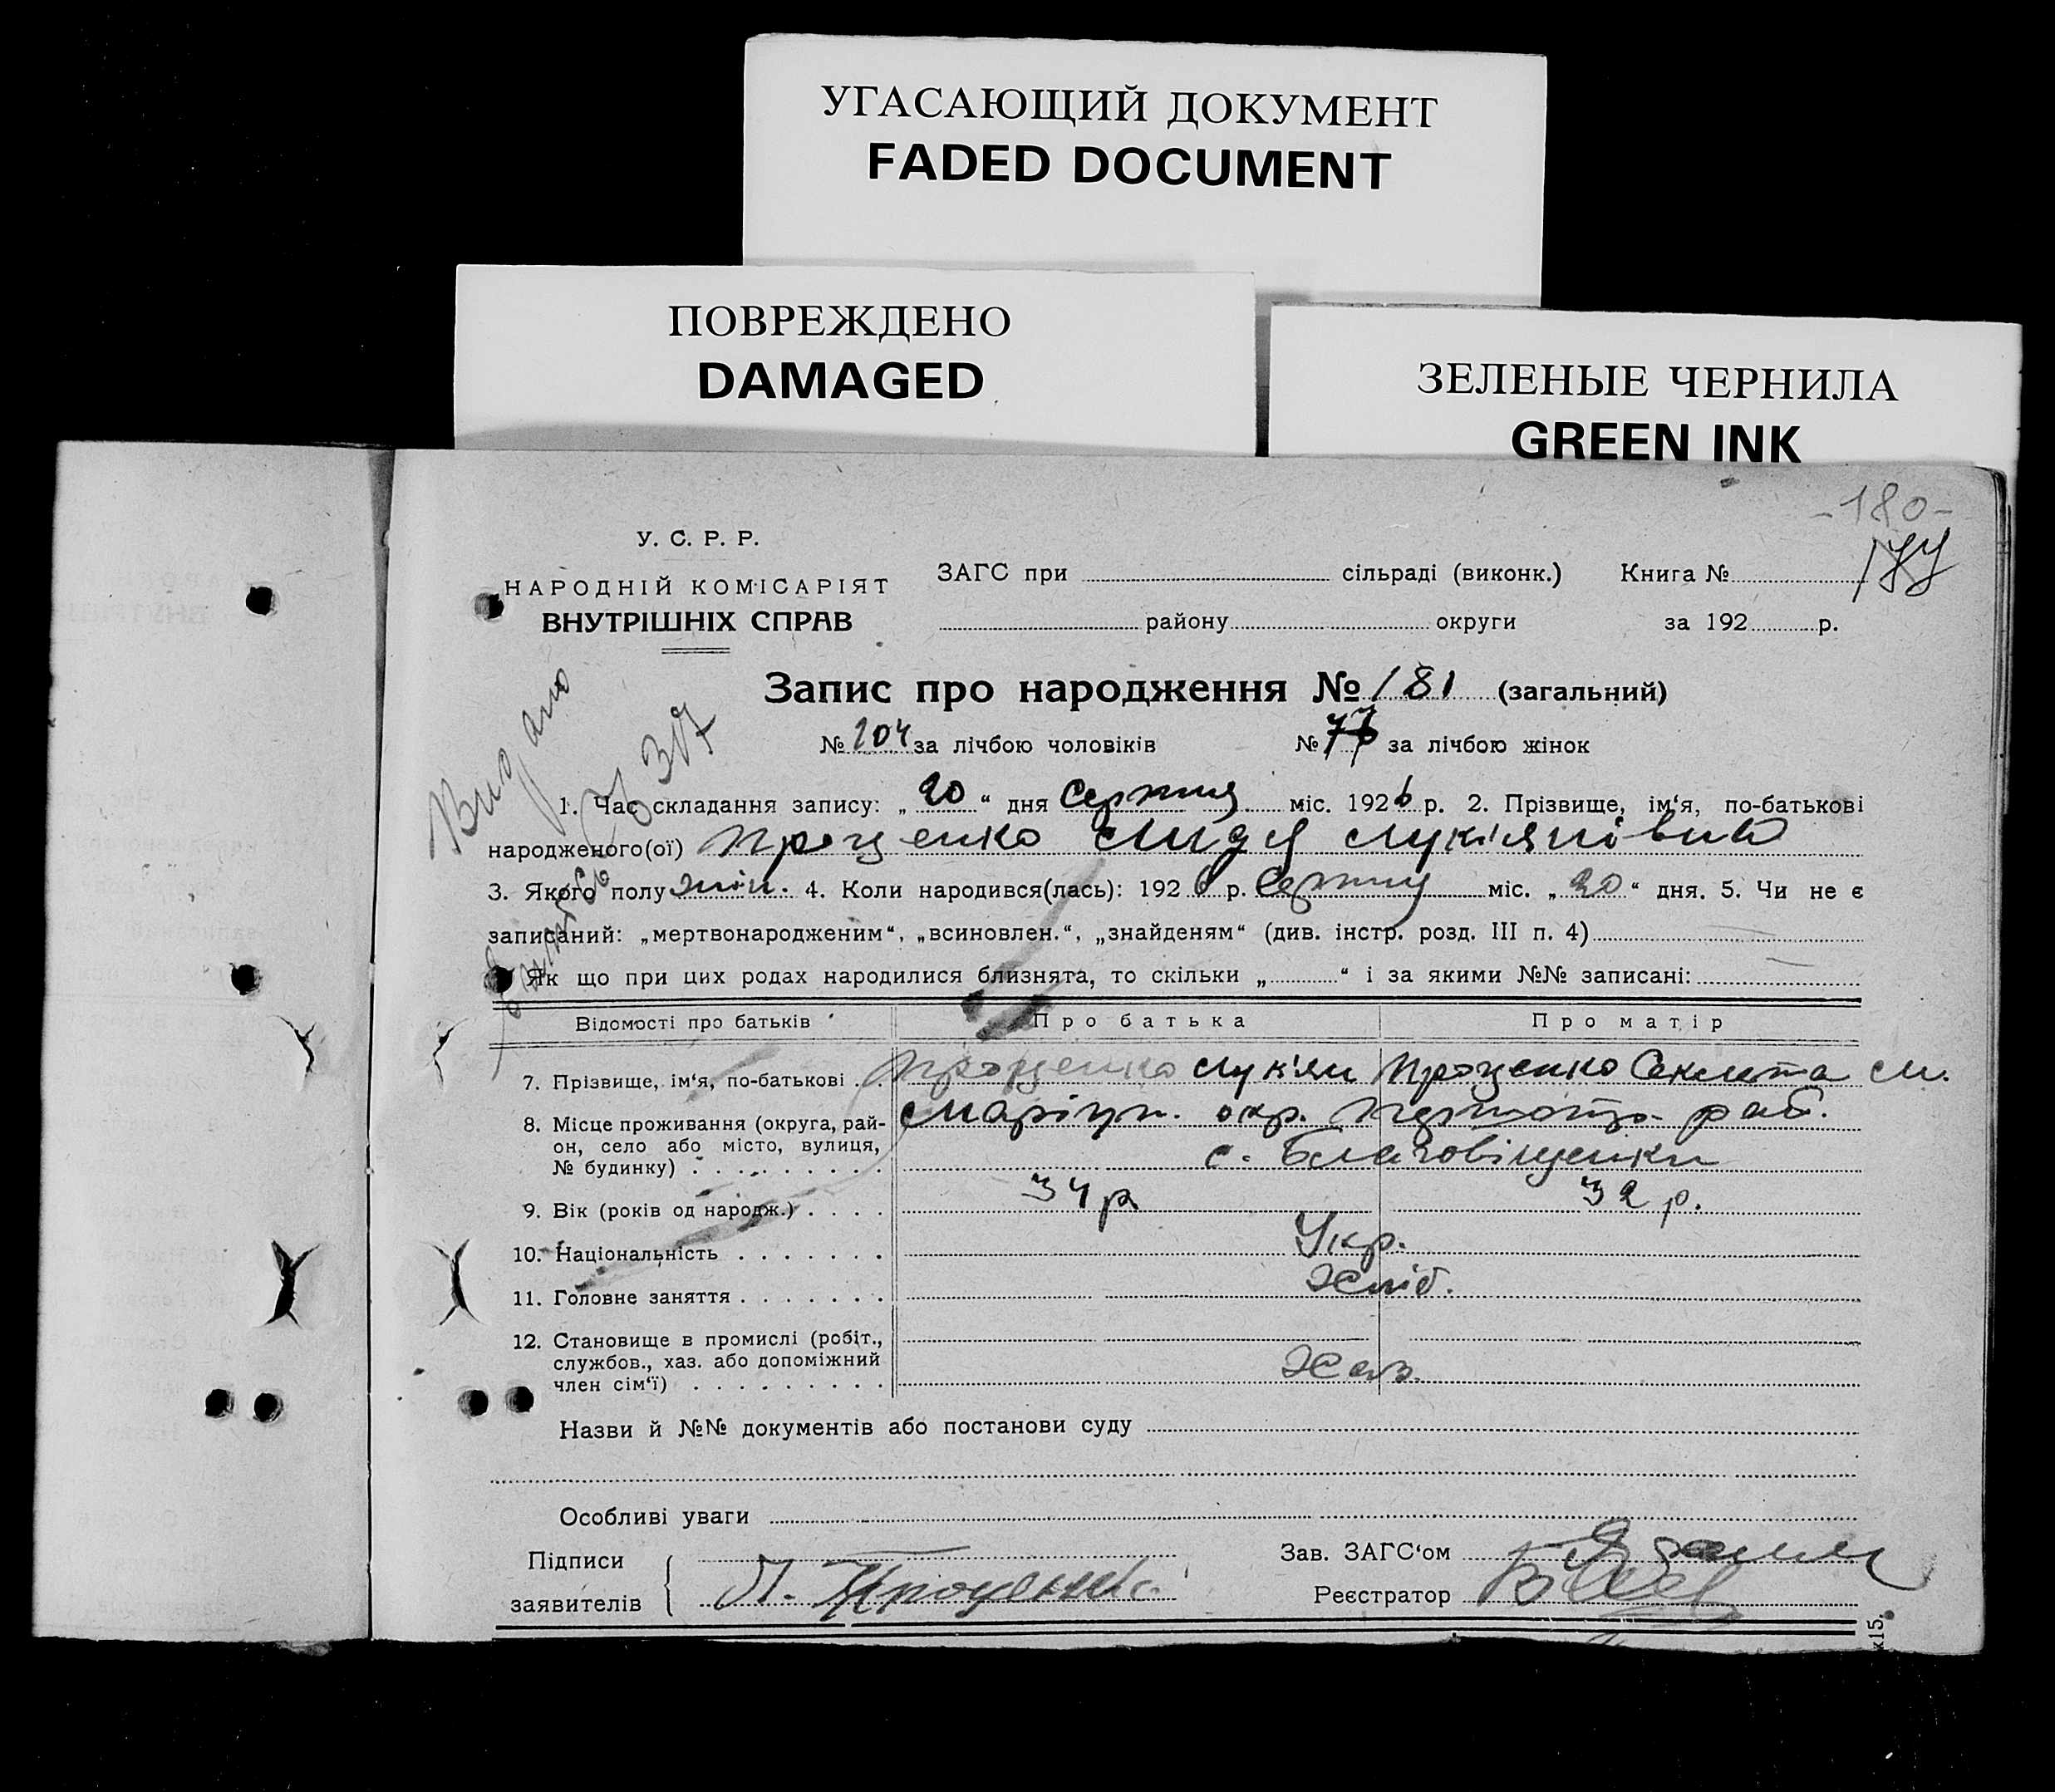 УГАСАЮЩИЙ ДОКУМЕНТ
FADED DOCUMENT
ПОВРЕЖДЕНО
DAMAGED
ЗЕЛЕНЫЕ ЧЕРНИЛА
GREEN INK
-180-
177
У. С. Р. Р.
НАРОДНІЙ КОМІСАРІЯТ
ВНУТРІШНІХ СПРАВ
ЗАГС при сільраді (виконк.) Книга №
району округи за 192 р.
Видано
307
Запис про народження № 181 (загальний)
№ 104 за лічбою чоловіків № 77 за лічбою жінок
1. Час складання запису: „20“ дня Серпня міс. 1926 р. 2. Прізвище, ім‘я, по-батькові
народженого(ої) Проценко Лидя Лук'янівна
3. Якого полу жін. 4. Коли народився(лась): 1926 р. Серпня міс. „20“ дня. 5. Чи не є
записаний: „мертвонародженим“, „всиновлен.“, „знайденям“ (див. інстр. розд. III п. 4)
Як що при цих родах народилися близнята, то скільки „ “ і за якими №№ записані:
Відомості про батьків Про батька Про матір
7. Прізвище, ім‘я, по-батькові Проценко Лук'ян Проценко Секлета М.
8. Місце проживання (округа, район, село або місто, вулиця, № будинку) Маріуп. окр. рай.
с. Благовіщенки
9. Вік (років од народж.) 34 р 32 р.
10. Національність Укр.
11. Головне заняття Хліб.
12. Становище в промислі (робіт.,
службов., хаз. або допоміжний
член сім‘ї) Хаз.
Назви й №№ документів або постанови суду
Особливі уваги
Підписи
заявителів Л. Проценко
Зав. ЗАГС‘ом
Реєстратор
x15.